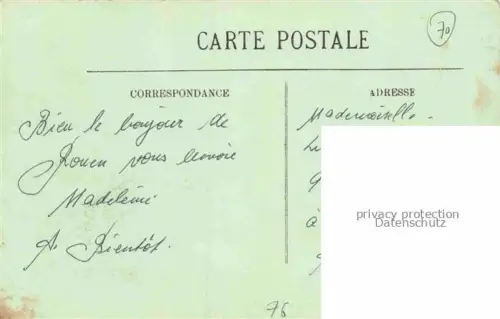 70
CARTE POSTALE
CORRESPONDANCE
ADRESSE
Bien le bonjour de
Rouen vous envoie
Madeleine
A Bientôt.
Mademoiselle
privacy protection
Datenschutz
à
76